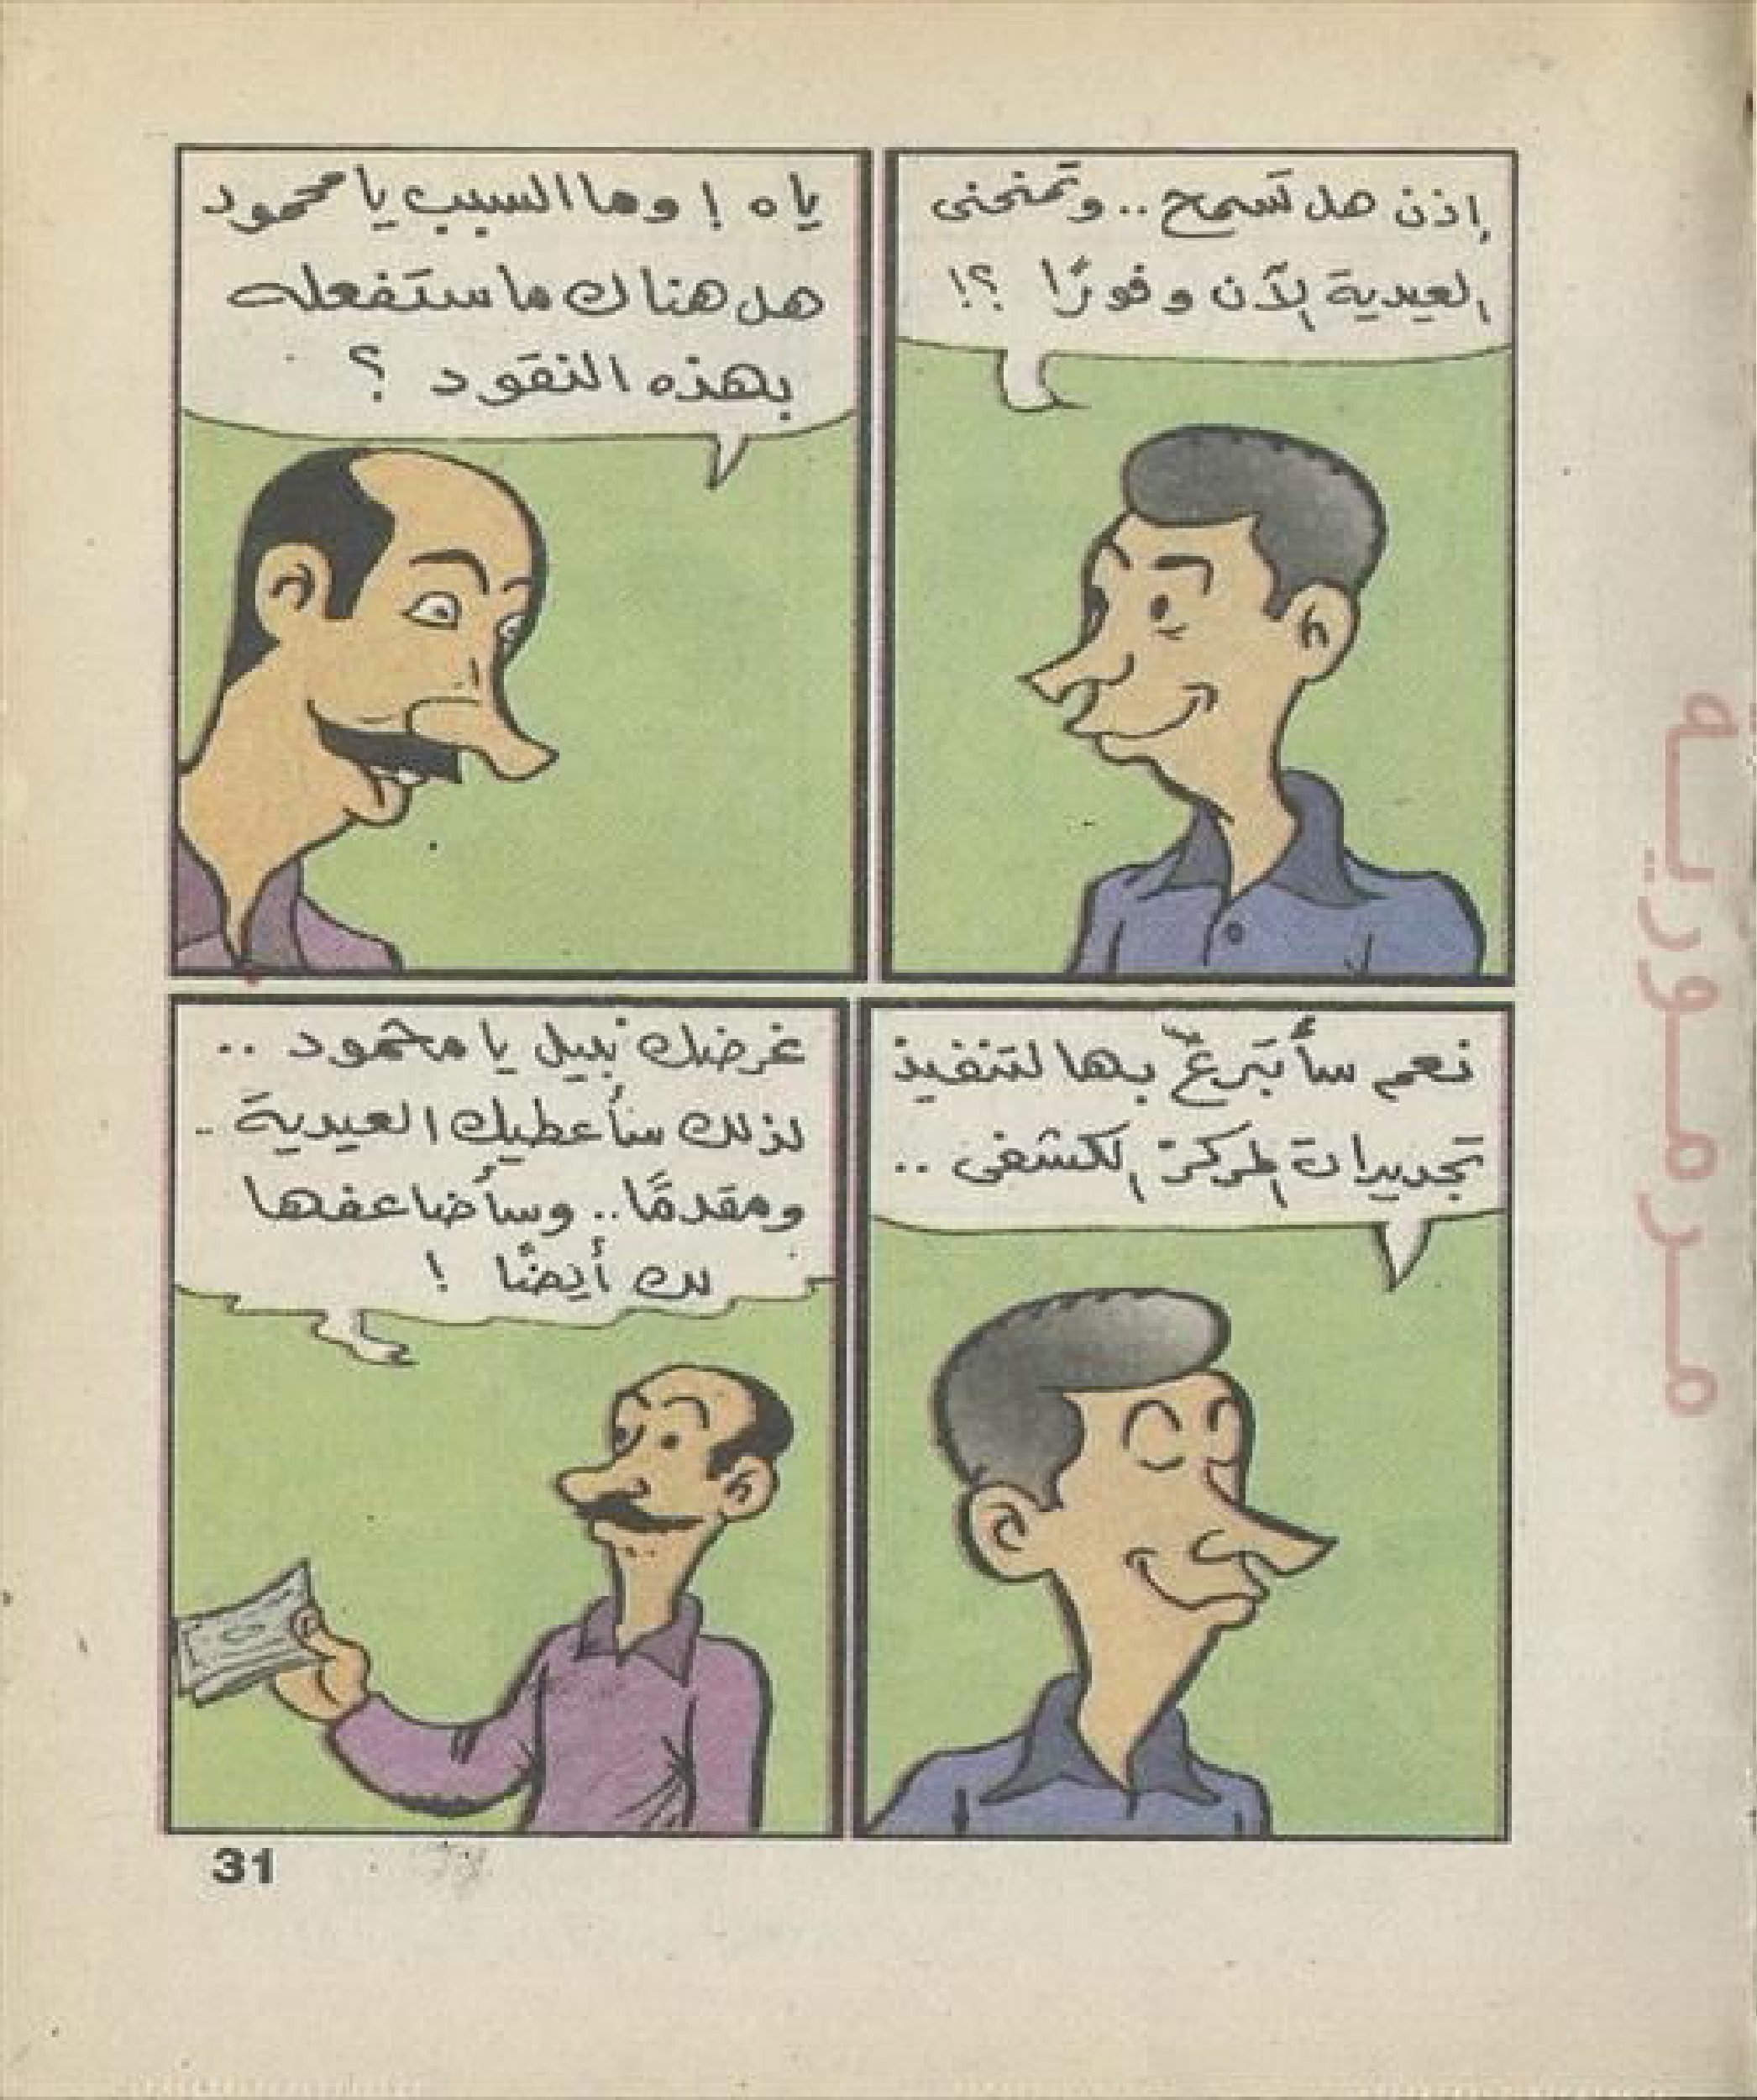 إذن هل تسمح .. وتمنحنى
العيدية الآن وفورًا ؟!
ياه ! وما السبب يا محمود
هل هناك ما ستفعله
بهذه النقود ؟
نعم سأتبرعّ بها لتنفيذ
تجديدات المركز الكشفى ..
غرضك نبيل يا محمود ..
لذلك سأعطيك العيدية ..
ومقدمًا .. وسأضاعفها
لك أيضًا !
31
مرموريه